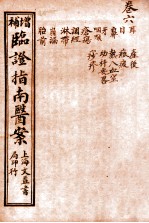 卷六
耳
目
鼻
牙
咽喉
瘡瘍
調經
淋帶
崩漏
胎前
產後
癥瘕
熱入血室
幼科要略
增補
臨證指南醫案
上海文益書
局印行